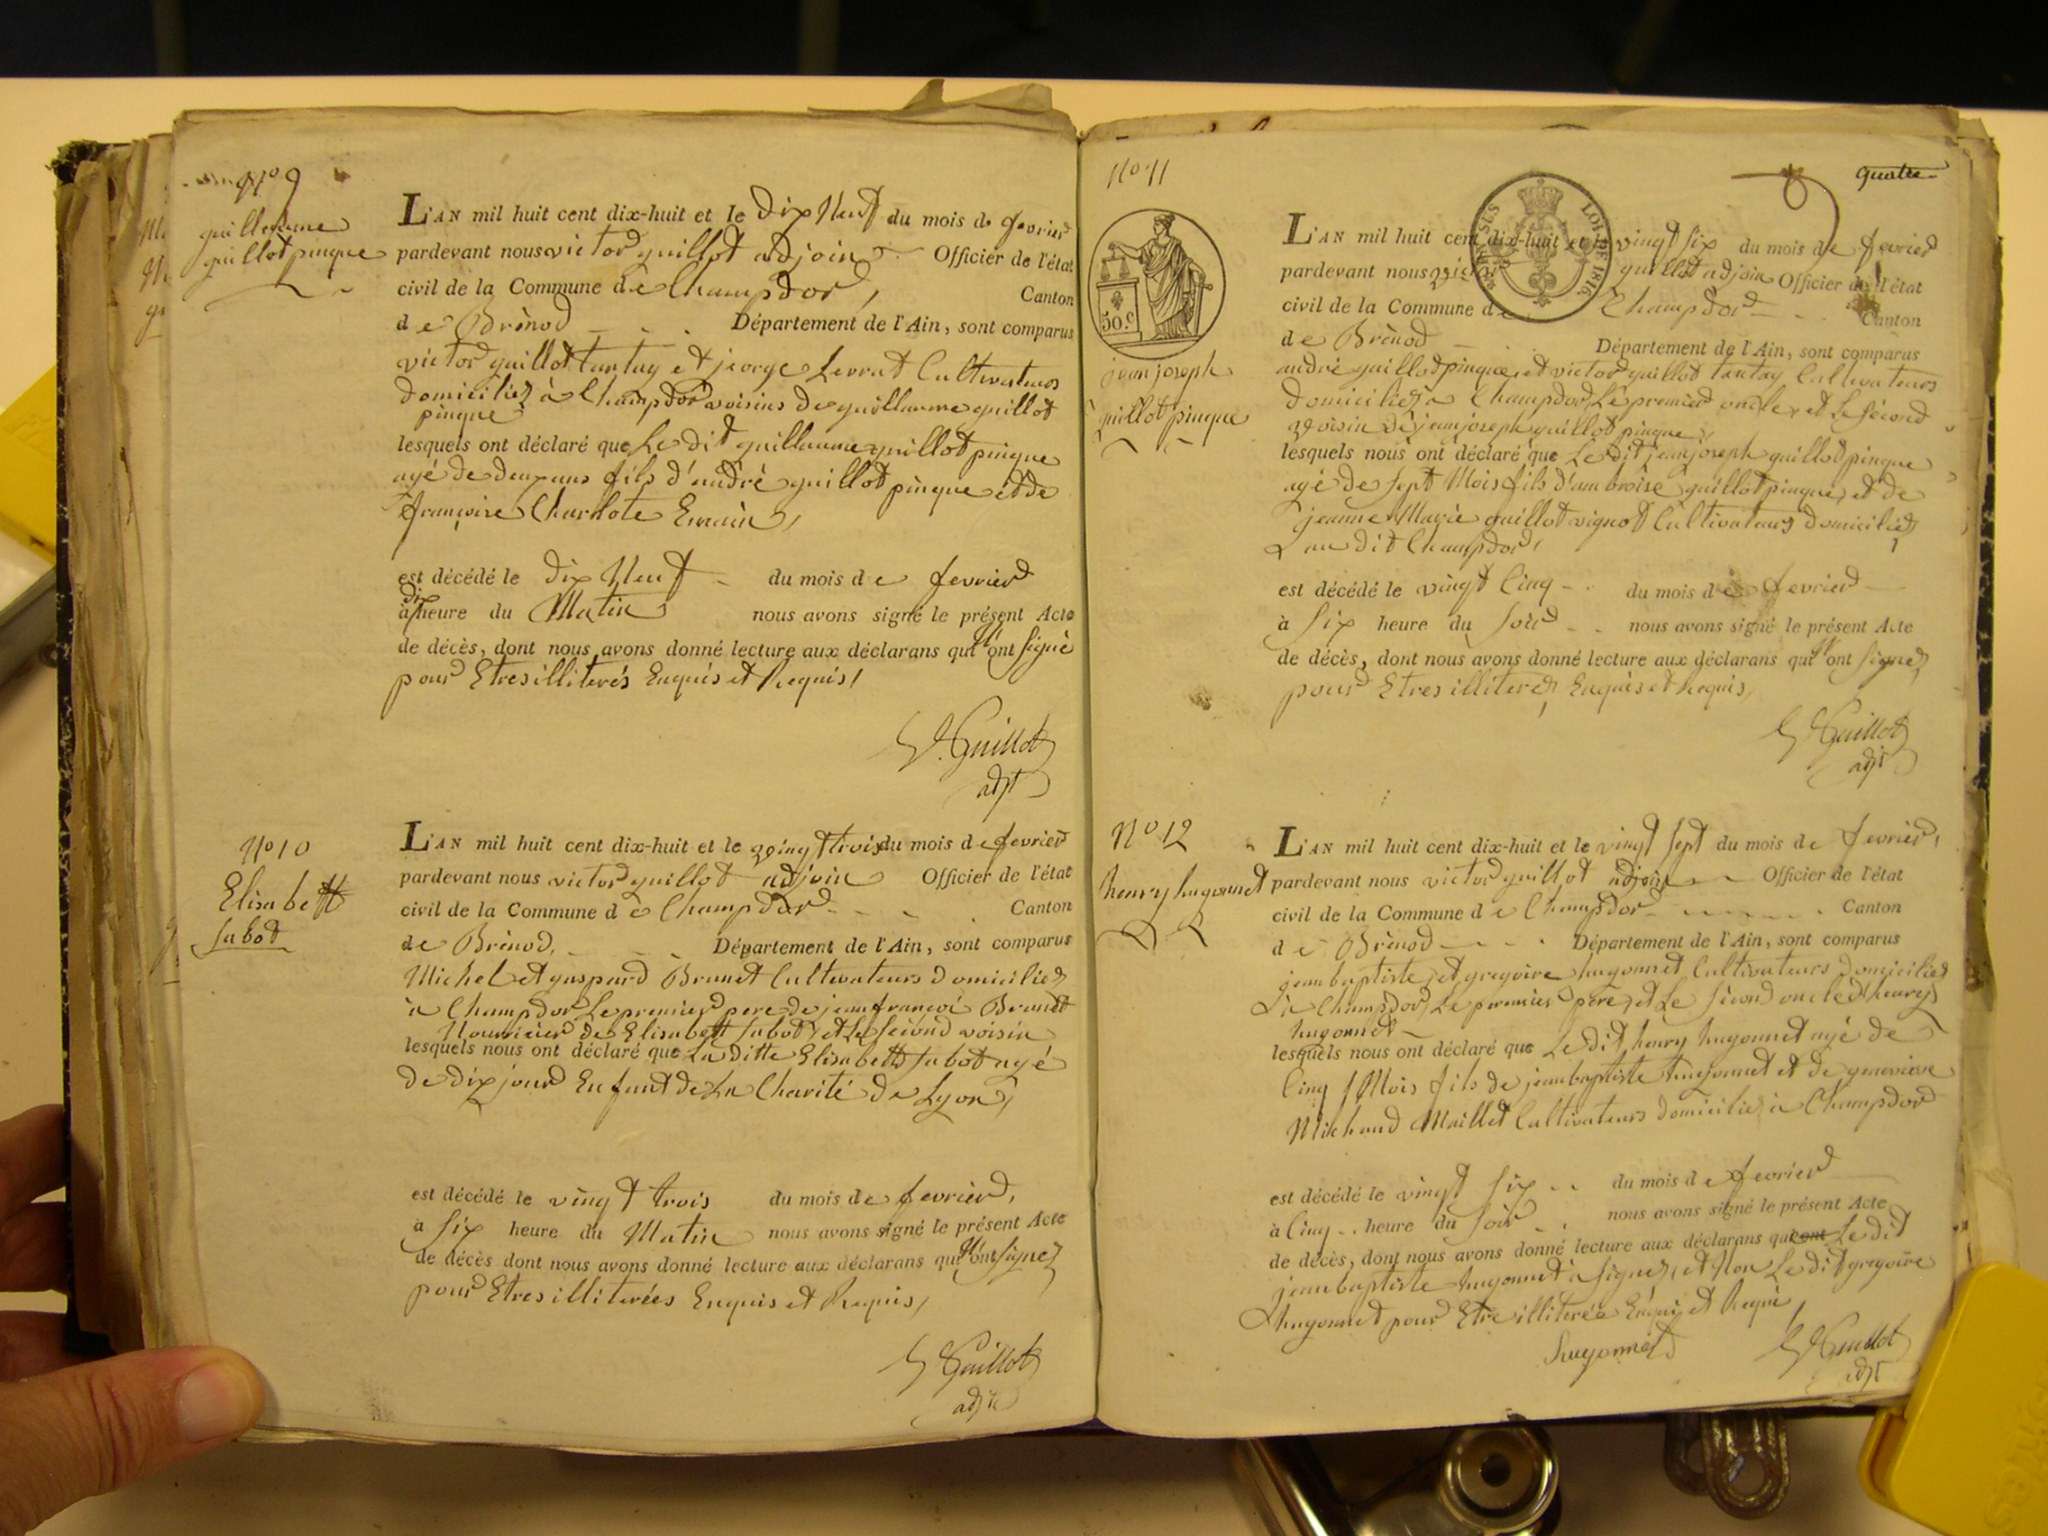 N° 9
guillaume
guillot pinque
L'AN mil huit cent dix-huit et le dix Neuf du mois de fevrier
pardevant nous victor guillot adjoin Officier de l'état
civil de la Commune de Champdor, Canton
de Brénod Département de l'Ain, sont comparus
victor guillot tantay et jeorge Levrat Cultivateurs
domiciliéz à Champdor voisins de guillaume guillot
pinque
lesquels ont déclaré que Le dit guillaume guillot pinque
agé de deux ans fils d'andré guillot pinque et de
françoise Charlote,
est décédé le dix Neuf du mois de fevrier
à dix heure du Matin nous avons signé le présent Acte
de décès, dont nous avons donné lecture aux déclarans qui n'ont signé
pour Etres illiterés Enquis et Requis,
V. Guillot
adjt
N° 10
Elisabett
Sabot
L'AN mil huit cent dix-huit et le vingt trois du mois de fevrier
pardevant nous victor guillot adjoin Officier de l'état
civil de la Commune de Champdor Canton
de Brénod, Département de l'Ain, sont comparus
Michel et gaspard Brunet Cultivateurs domiciliéz
à Champdor Le premier pere de jean françoi Brunet
Nourricier de Elisabett Sabot, et Le Second voisin
lesquels nous ont déclaré que La ditte Elisabett Sabot agé
de dix jour Enfant de La Charité de Lyon,
est décédé le vingt trois du mois de fevrier,
à Six heure du Matin nous avons signé le présent Acte
de décès dont nous avons donné lecture aux déclarans qui n'ont Signéz
pour Etres illiterées Enquis et Requis,
V. Guillot
adjt
N° 11
quatre
50.c
LOI DE 1816
jean joseph
guillot pinque
L'AN mil huit cent dix-huit et le vingt Six du mois de fevrier
pardevant nous victor guillot adjoin Officier de l'état
civil de la Commune de Champdor Canton
de Brénod Département de l'Ain, sont comparus
andré guillot pinque, et victor guillot tantay Cultivateurs
domiciliéz à Champdor, Le premier oncle, et Le Second
voisin de jean joseph guillot pinque,
lesquels nous ont déclaré que Le dit jean joseph guillot pinque
agé de Sept Mois fils d'ambroise guillot pinque, et de
jeanne Marie guillot vignot Cultivateurs domiciliéz
au dit Champdor,
est décédé le vingt Cinq du mois de fevrier
à Six heure du Soir nous avons signé le présent Acte
de décès, dont nous avons donné lecture aux déclarans qui n'ont Signéz
pour Etres illiteréz, Enquis et Requis,
V. Guillot
adjt
N° 12
henry hugonnet
L'AN mil huit cent dix-huit et le vingt Sept du mois de fevrier,
pardevant nous victor guillot adjoin Officier de l'état
civil de la Commune de Champdor Canton
de Brénod Département de l'Ain, sont comparus
jean baptiste, et gregoire hugonnet Cultivateurs domiciliéz
à Champdor, Le premier père, et Le Sécond oncle d'henry
hugonnet
lesquels nous ont déclaré que Le dit henry hugonnet agé de
Cinq Mois fils de jean baptiste hugonnet et de genevieve
Michaud Maillet Cultivateurs domicilié à Champdor
est décédé le vingt Six du mois de fevrier
à Cinq heure du Soir nous avons signé le présent Acte
de décès, dont nous avons donné lecture aux déclarans que ont Le dit
jean baptiste hugonnet à Signéz, et Non Le dit gregoire
hugonnet pour Etre illiterée Enqui et Requi,
hugonnet
V. Guillot
adjt